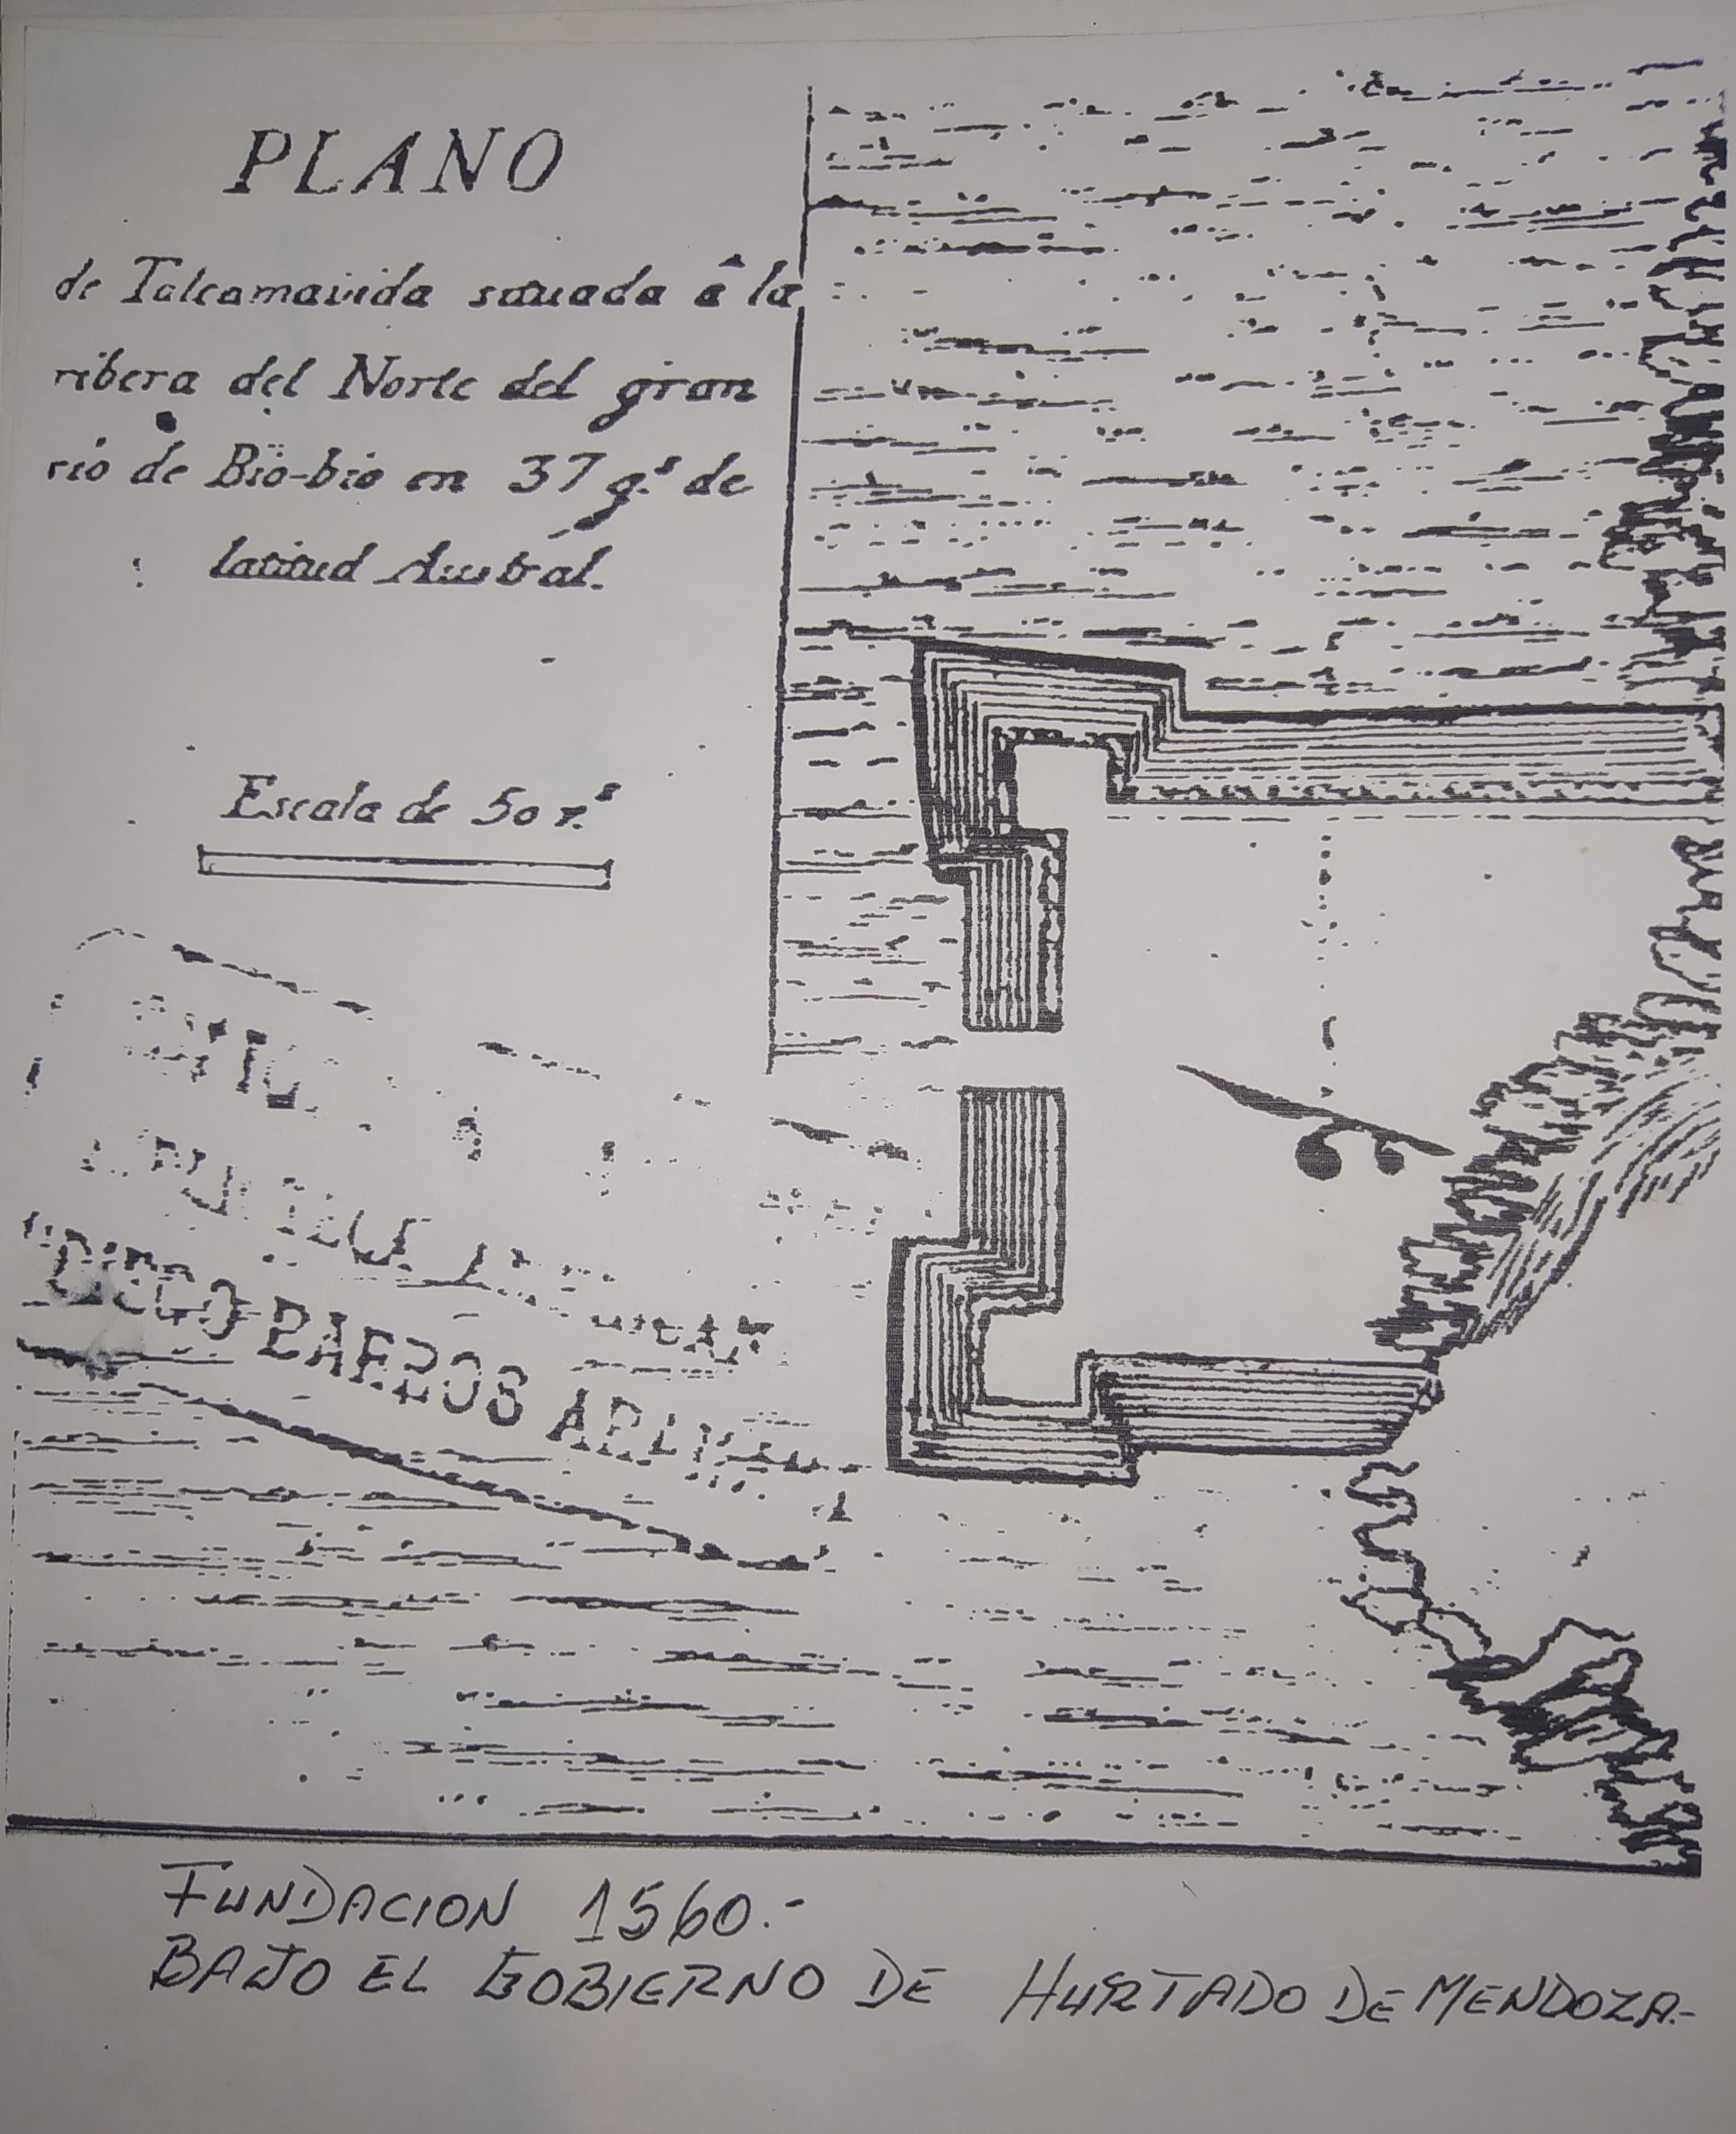 PLANO
de Talcamavida situada â la
ribera del Norte del gran
rio de Bio-bio en 37 g.s de
latitud Austral.
Escala de 50 v.s
"DIEGO BARROS ARANA
FUNDACION 1560.-
BAJO EL GOBIERNO DE HURTADO DE MENDOZA.-